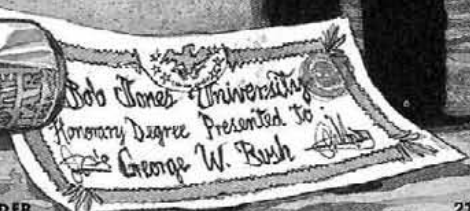 Bob Jones University
Honorary Degree Presented to
George W. Bush
DER
23